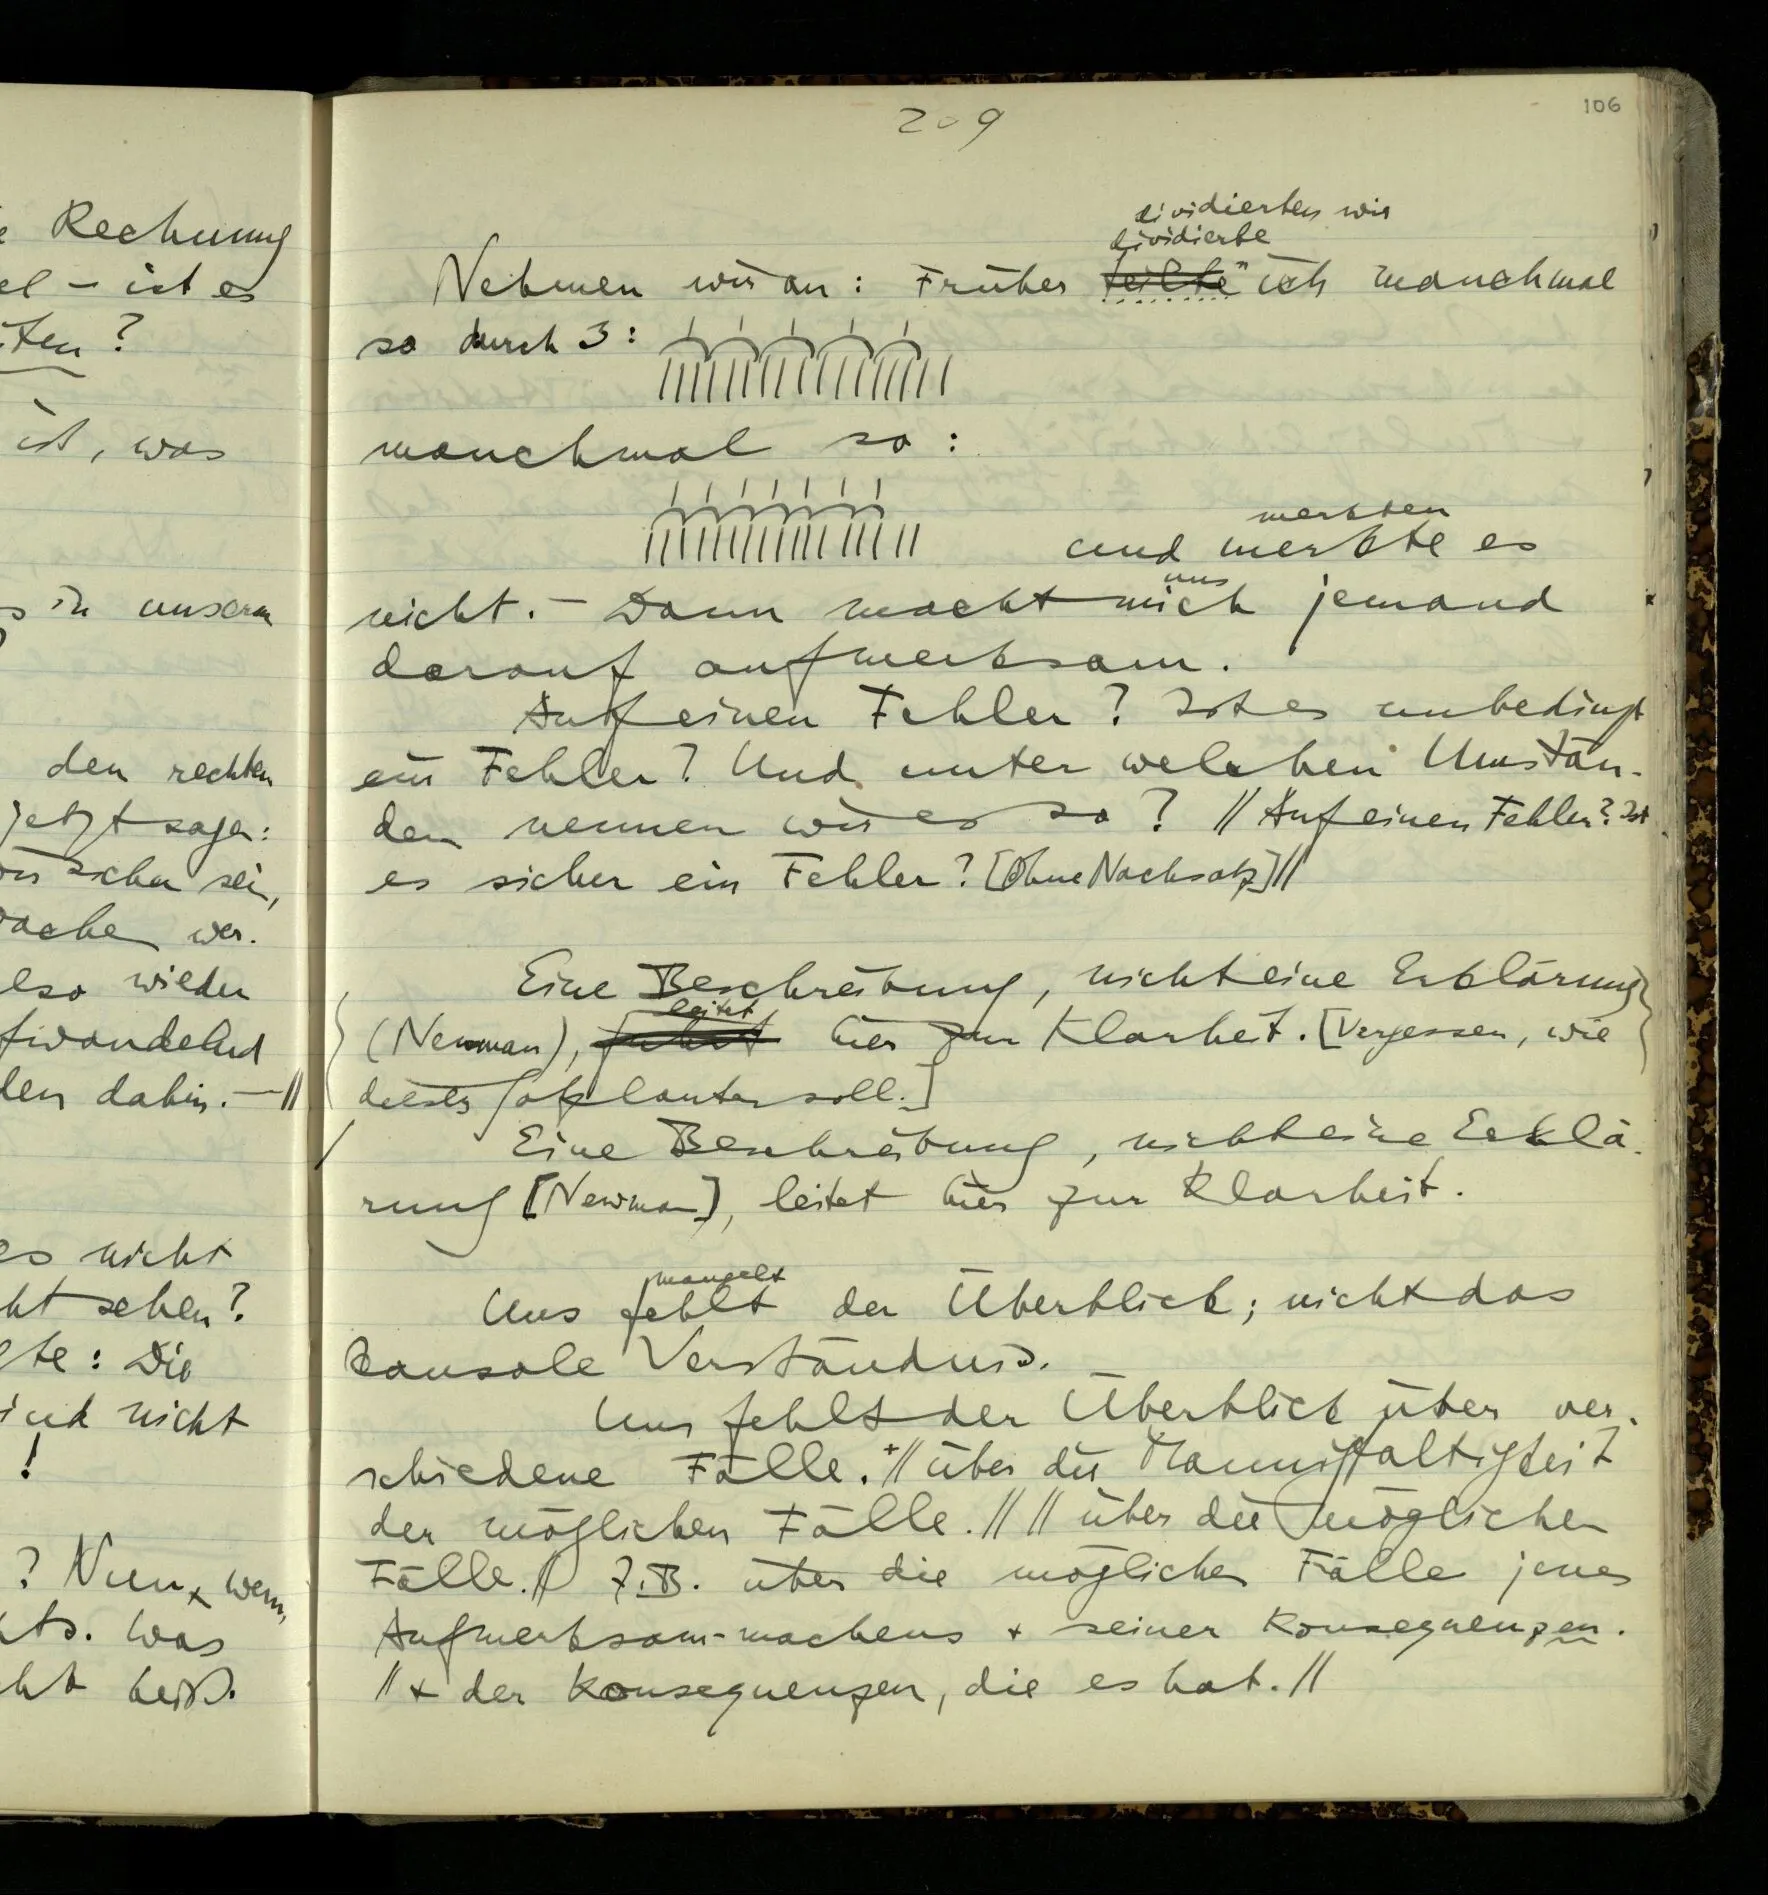 e Rechnung
el – ist es
iten?
ist, was
s in unserm
den rechten
jetzt sagen:
sicher sei,
rache wer-
lso wieder
fwandelnd
den dahin. – //
es nicht
ht sehen?
gte: Die
ind nicht
!
? Nun, wenn
hts. Was
cht heiß.
209
106
dividierten wir
dividierte
Nehmen wir an: Früher teilte ich manchmal
so durch 3:
manchmal so:
merkten
und merkte es
uns
nicht. – Dann macht mich jemand
darauf aufmerksam.
Auf einen Fehler? Ist es unbedingt
ein Fehler? Und unter welchen Umstän-
den nennen wir es so? // Auf einen Fehler? Ist
es sicher ein Fehler? [Ohne Nachsatz] //
Eine Beschreibung, nicht eine Erklärung
leitet
(Newman), führt hier zur Klarheit. [Vergessen, wie
dieser Satz lauten soll.]
/ Eine Beschreibung, nicht eine Erklä-
rung [Newman], leitet hier zur Klarheit.
mangelt
Uns fehlt der Überblick; nicht das
kausale Verständnis.
Uns fehlt der Überblick über ver-
schiedene Fälle. + // über die Mannigfaltigkeit
der möglichen Fälle. // // über die möglichen
Fälle. // Z.B. über die möglichen Fälle jenes
Aufmerksam-machens + seiner Konsequenzen.
// + der Konsequenzen, die es hat. //